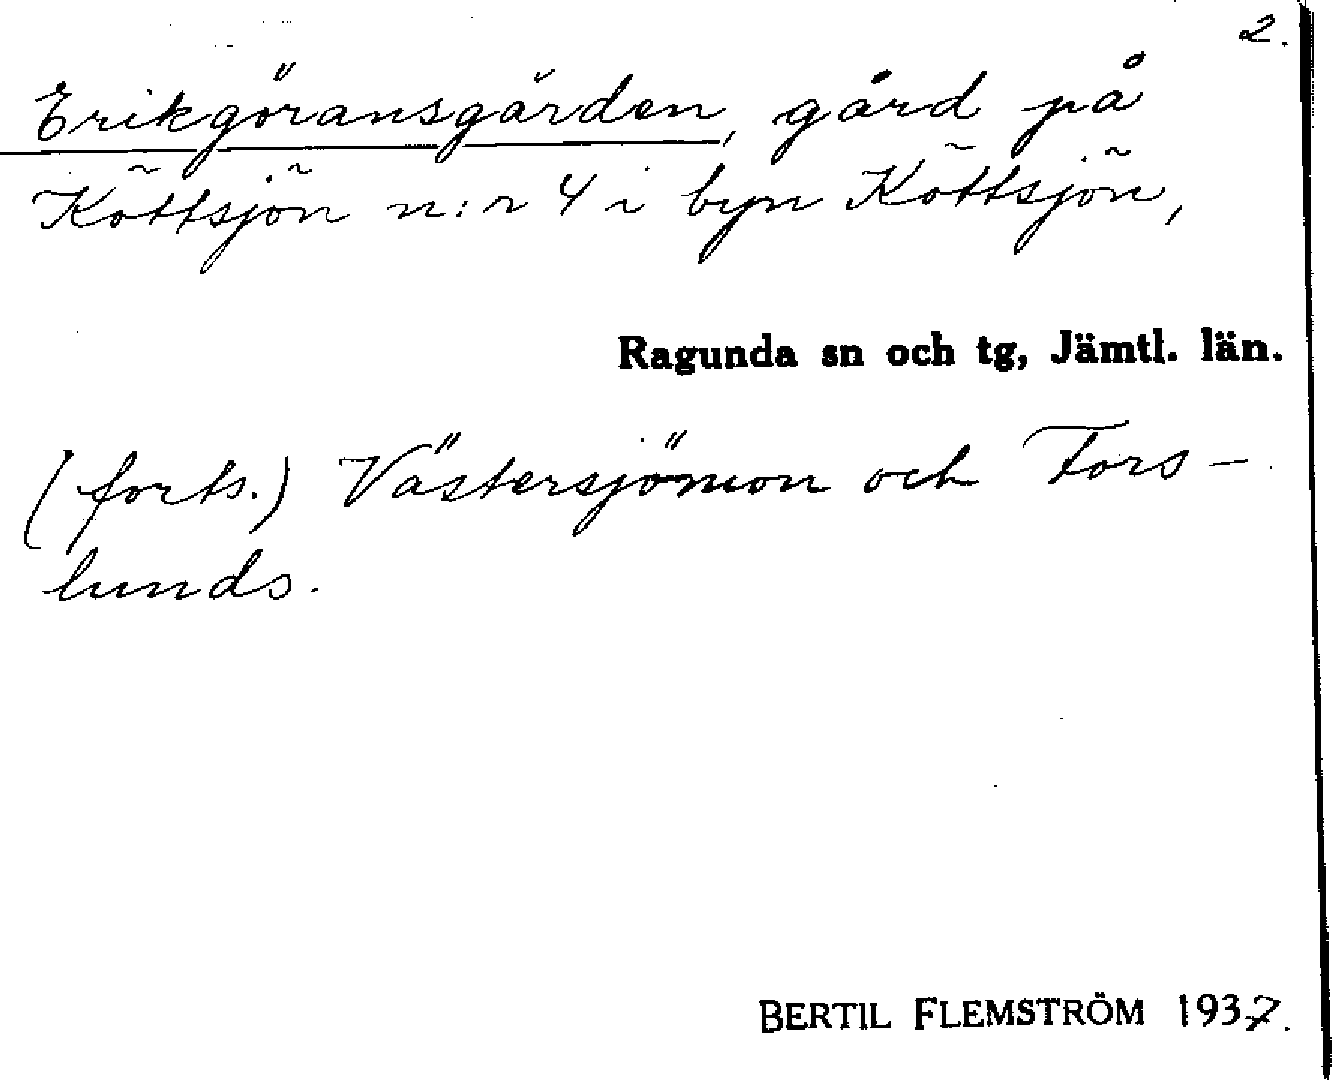 2.
Erikgöransgården, gård på
Köttsjön n:r 4 i byn Köttsjön,
Ragunda sn och tg, Jämtl. län.
(forts.) Västersjömon och Fors-
lunds.
BERTIL FLEMSTRÖM 1937.